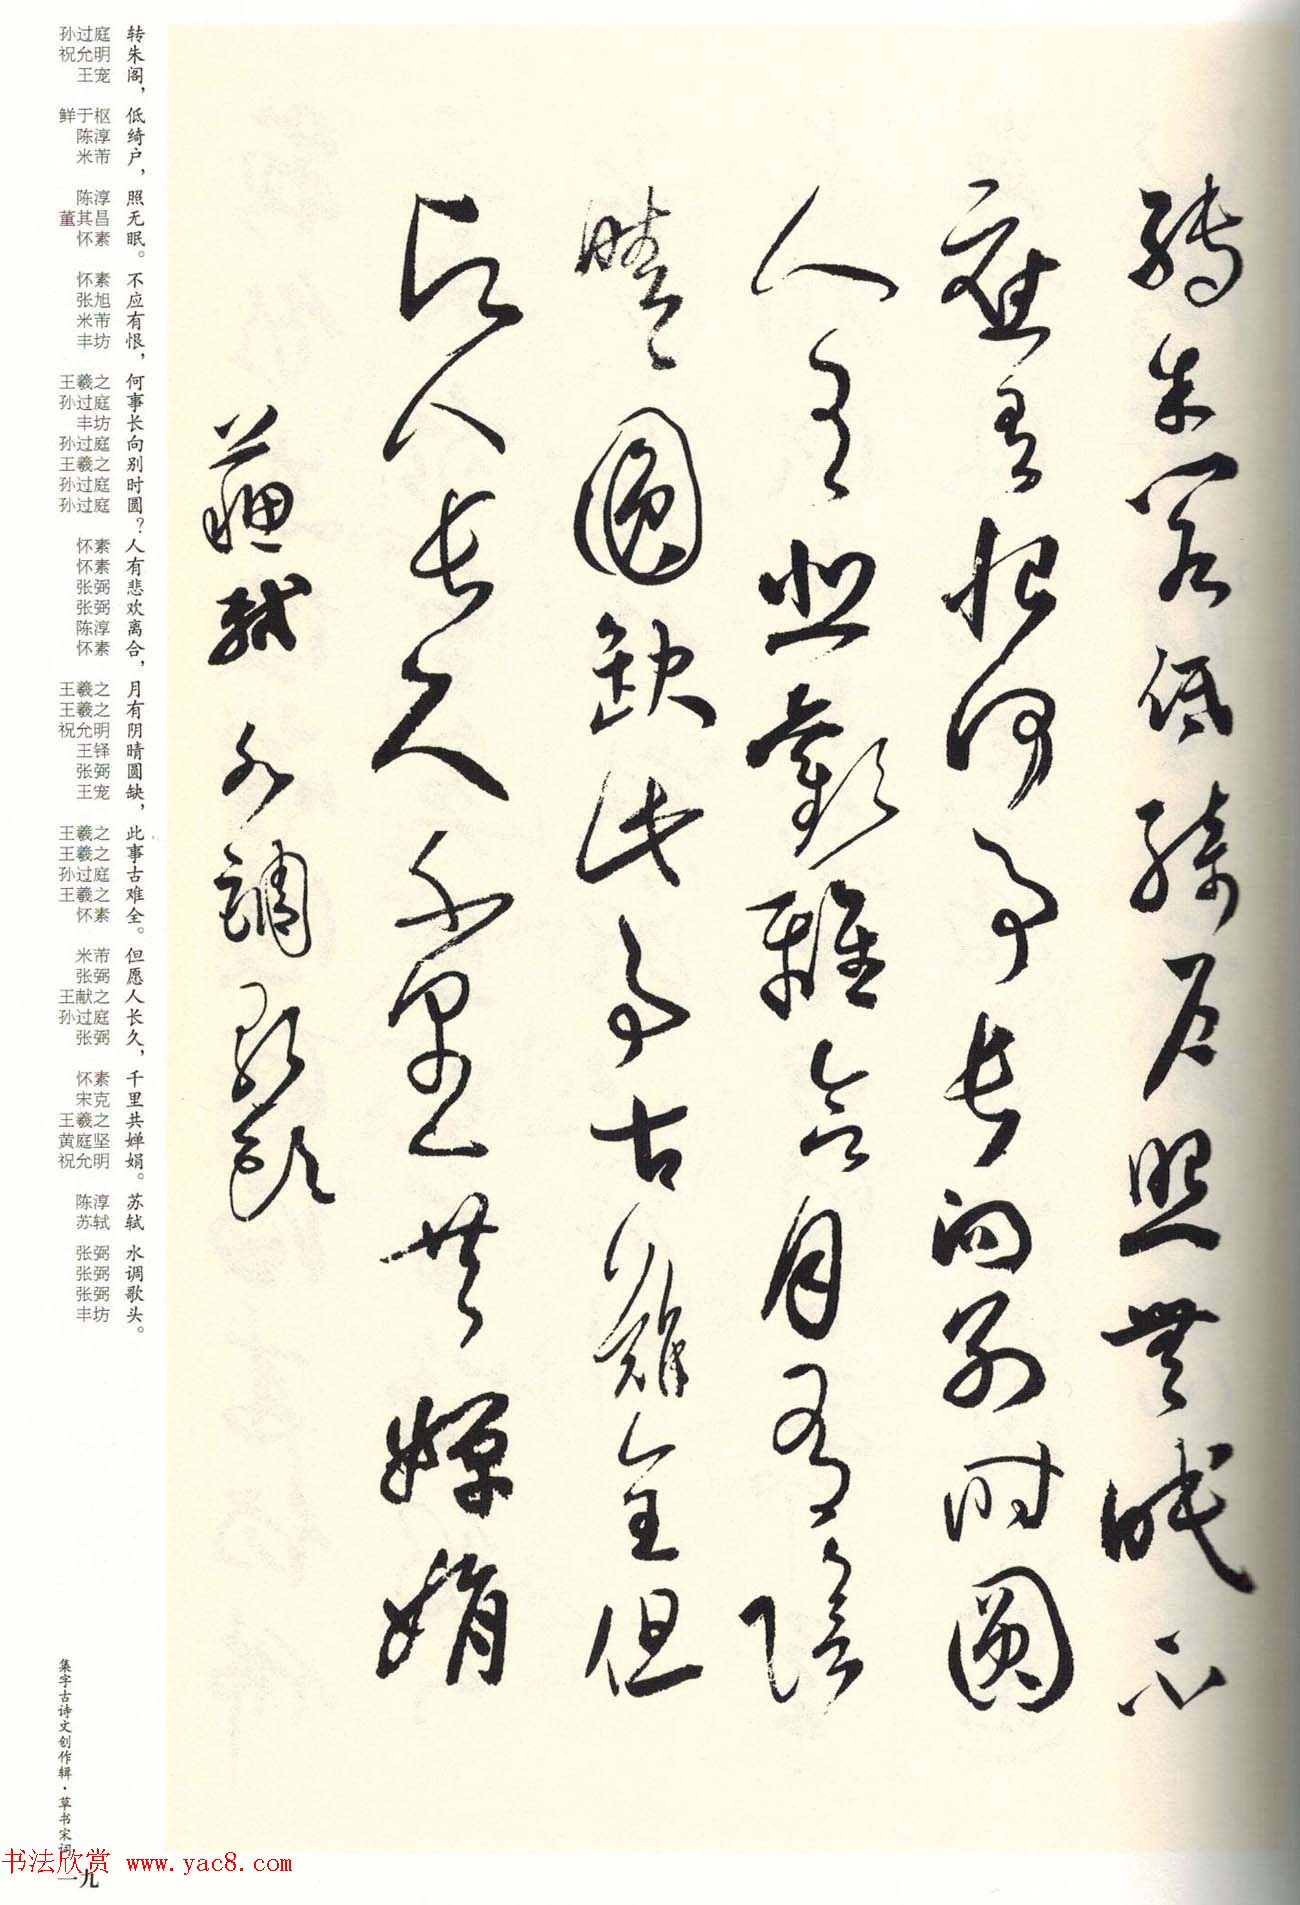 轉朱閣低綺户照無眠不
應有恨何事長向别時圓
人有悲歡離合月有陰
晴圓缺此事古難全但
願人長久千里共嬋娟
蘇軾 水調歌頭
转朱阁，低绮户，照无眠。不应有恨，何事长向别时圆？人有悲欢离合，月有阴晴圆缺，此事古难全。但愿人长久，千里共婵娟。苏轼 水调歌头。
孙过庭 祝允明 王宠 鲜于枢 陈淳 米芾 陈淳 董其昌 怀素 怀素 张旭 米芾 丰坊 王羲之 孙过庭 丰坊 孙过庭 王羲之 孙过庭 孙过庭 怀素 怀素 张弼 张弼 陈淳 怀素 王羲之 王羲之 祝允明 王铎 张弼 王宠 王羲之 王羲之 孙过庭 王羲之 怀素 米芾 张弼 王献之 孙过庭 张弼 怀素 宋克 王羲之 黄庭坚 祝允明 陈淳 苏轼 张弼 张弼 张弼 丰坊
集字古诗文创作辑·草书宋词
一九
书法欣赏 www.yac8.com